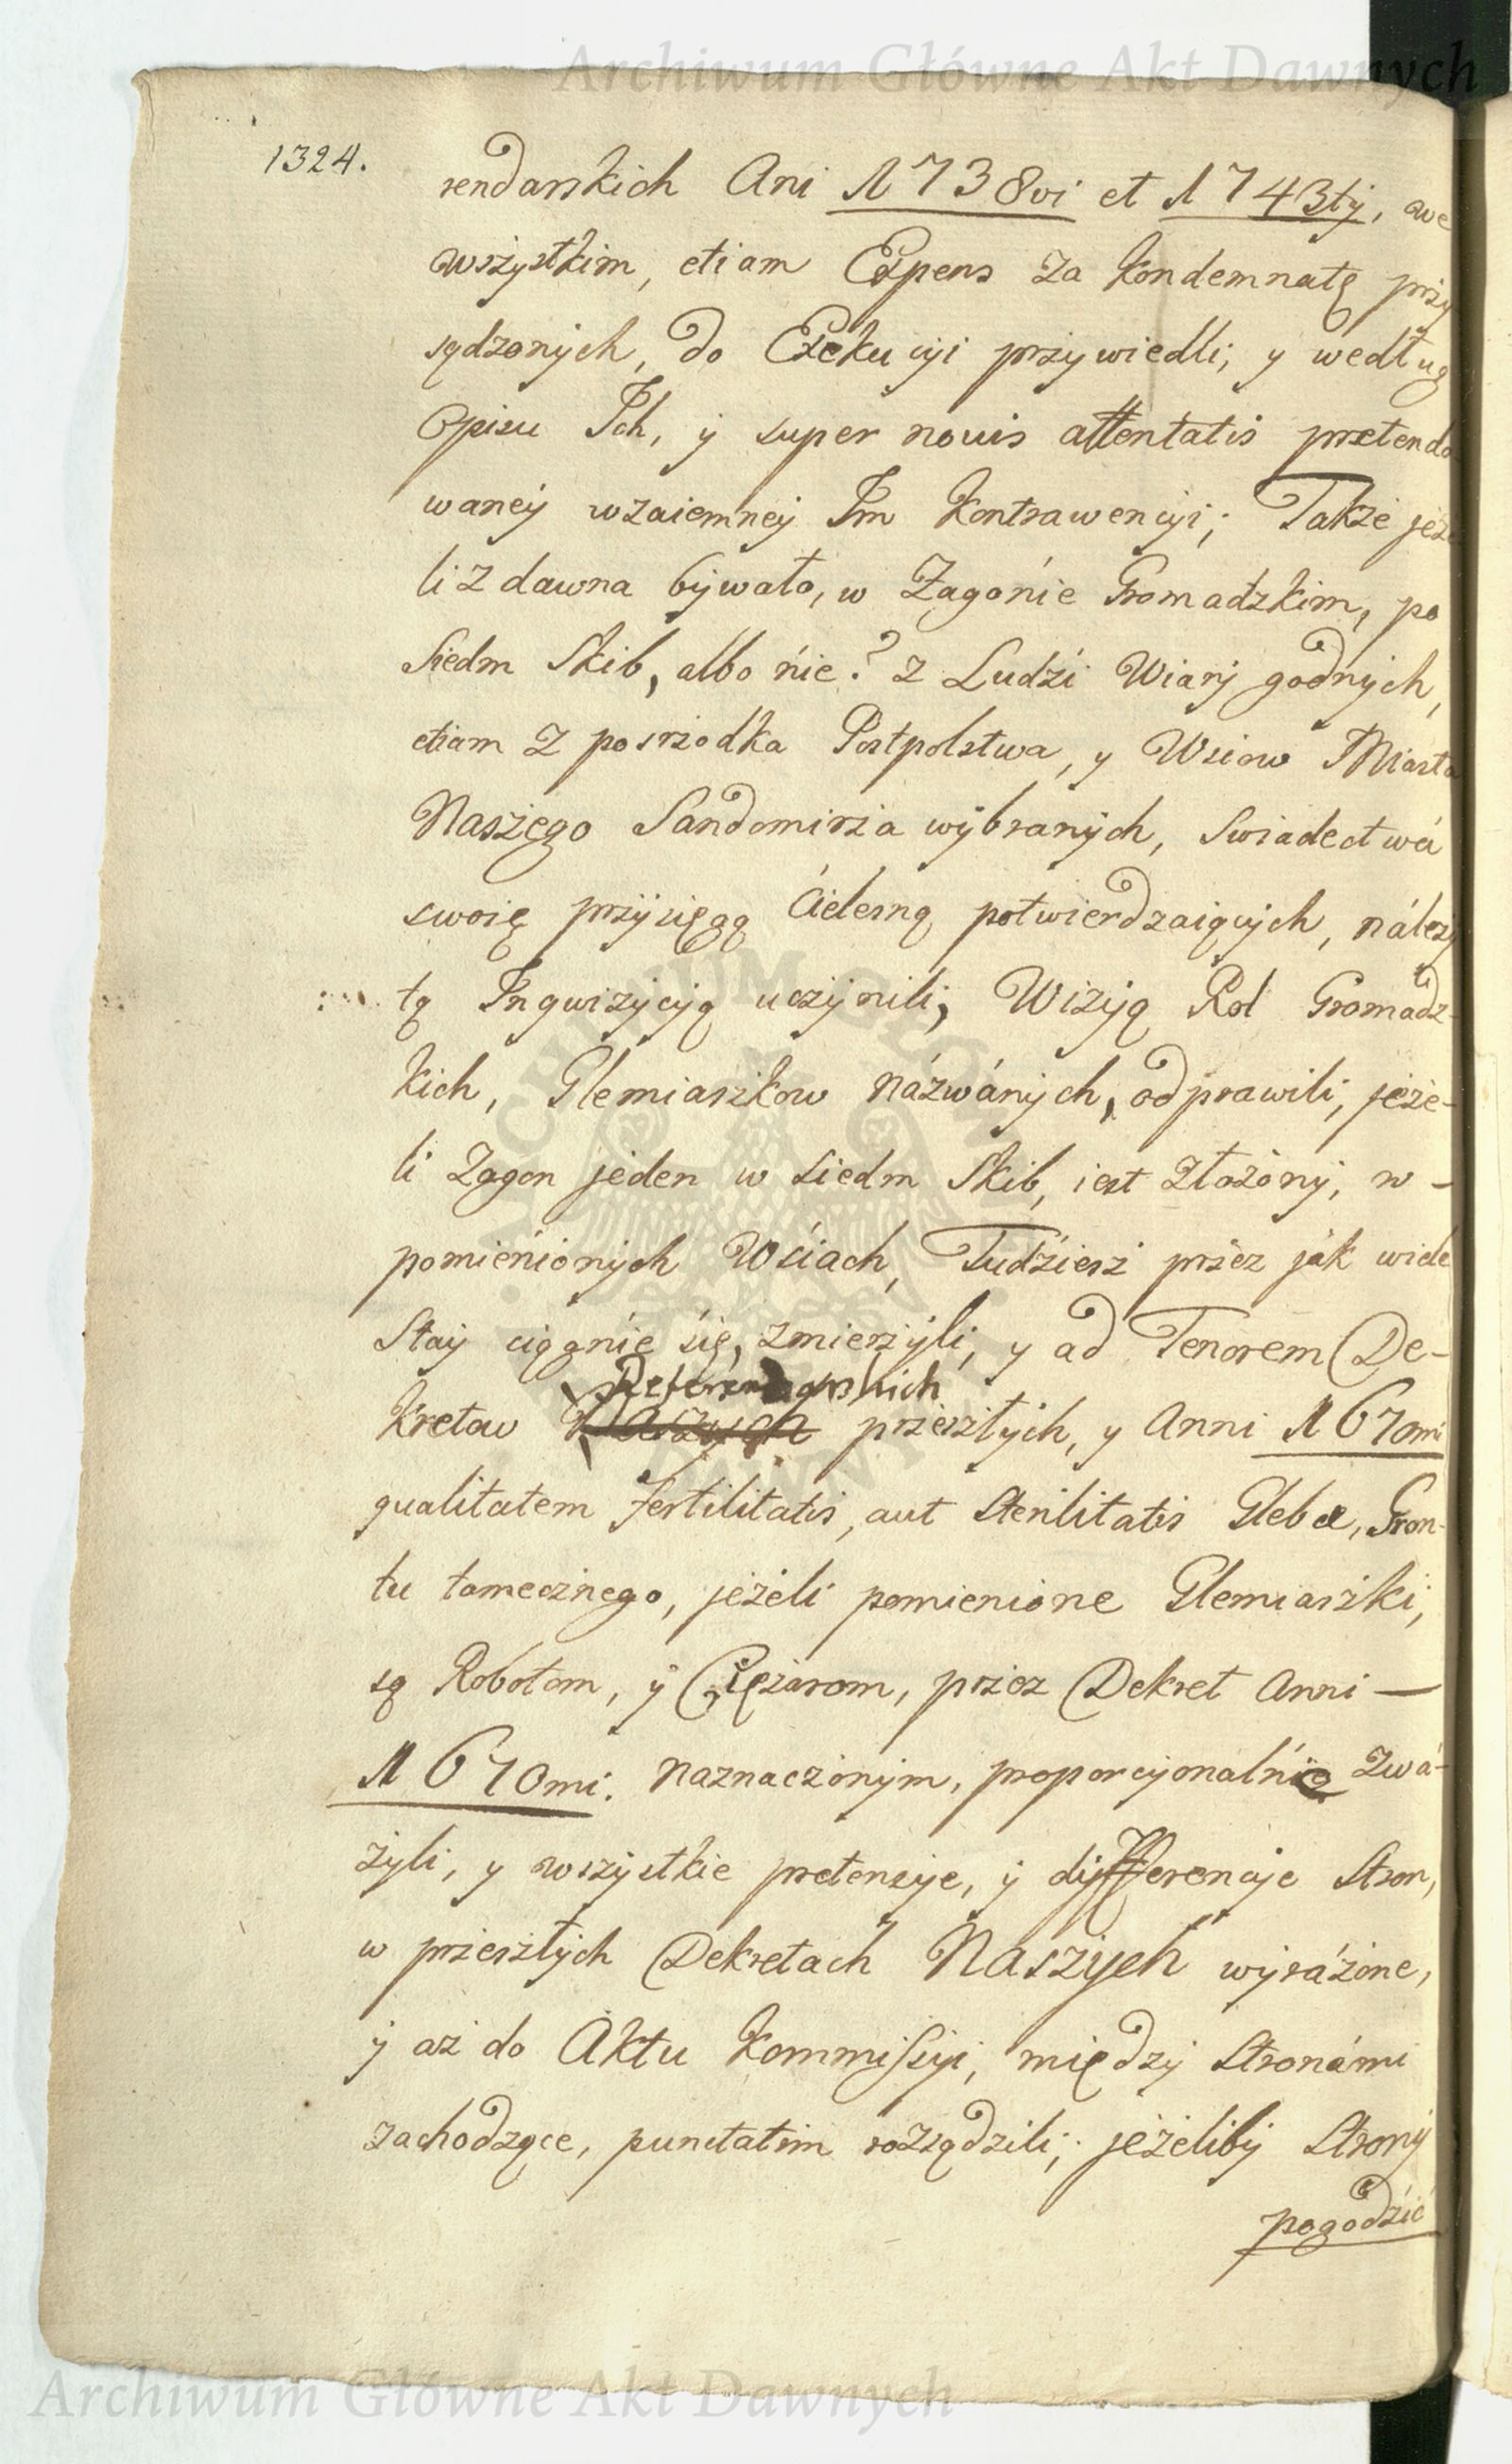 Archiwum Główne Akt Dawnych
1324.
rendarskich Ani 1738vi et 1743tÿ, we
wszystkim, etiam Expens za Kondemnatę przy
sądzonych, do Exekucyi przywiedli; y według
Opisu Ich, ÿ super novis attentatis pretendo
waneÿ wzaiemneÿ Im Kontrawencyi; Także jeże
li z dawna bÿwało, w Zagonie Gromadzkim, po
Siedm Skib, albo nie? z Ludzi Wiary godnÿch,
etiam z posrzodka Postpolstwa, y Wsiow Miasta
Naszego Sandomirza wÿbranÿch, Swiadectwá
swoię przÿsięgą Cielesną potwierdzaiącÿch, nálezy
tą Inqwizÿcÿą uczÿnili, Wizÿą Rol Gromadz-
kich, Glemiaszkow názwánÿch, odprawili, jeże-
li Zagon jeden w siedm Skib, iest złożony, w -
pomienionÿch Wsiach, Tudziesz przez jak wiele
Staÿ ciągnie się, zmierzÿli, y ad Tenorem De-
Referendarskich
kretow Naszych przeszłÿch, y Anni 1670mi
qualitatem fertilitatis, aut Sterilitatis Glebæ, Gron-
tu tamecznego, jeżeli pomienione Glemiaszki,
są Robotom, ÿ Ciężarom, przez Dekret Anni —
1670mi. naznaczonÿm, proporcÿonalnie zwá-
żyli, y wszÿstkie pretensÿe, ÿ dÿfferencÿe Stron,
w przeszłÿch Dekretach Naszÿch wÿrażone,
ÿ aż do Aktu Kommissÿi, międzÿ Stronámi
zachodzące, punctatim rozsądzili; jeżelibÿ Strony
pogodzić
Archiwum Główne Akt Dawnych